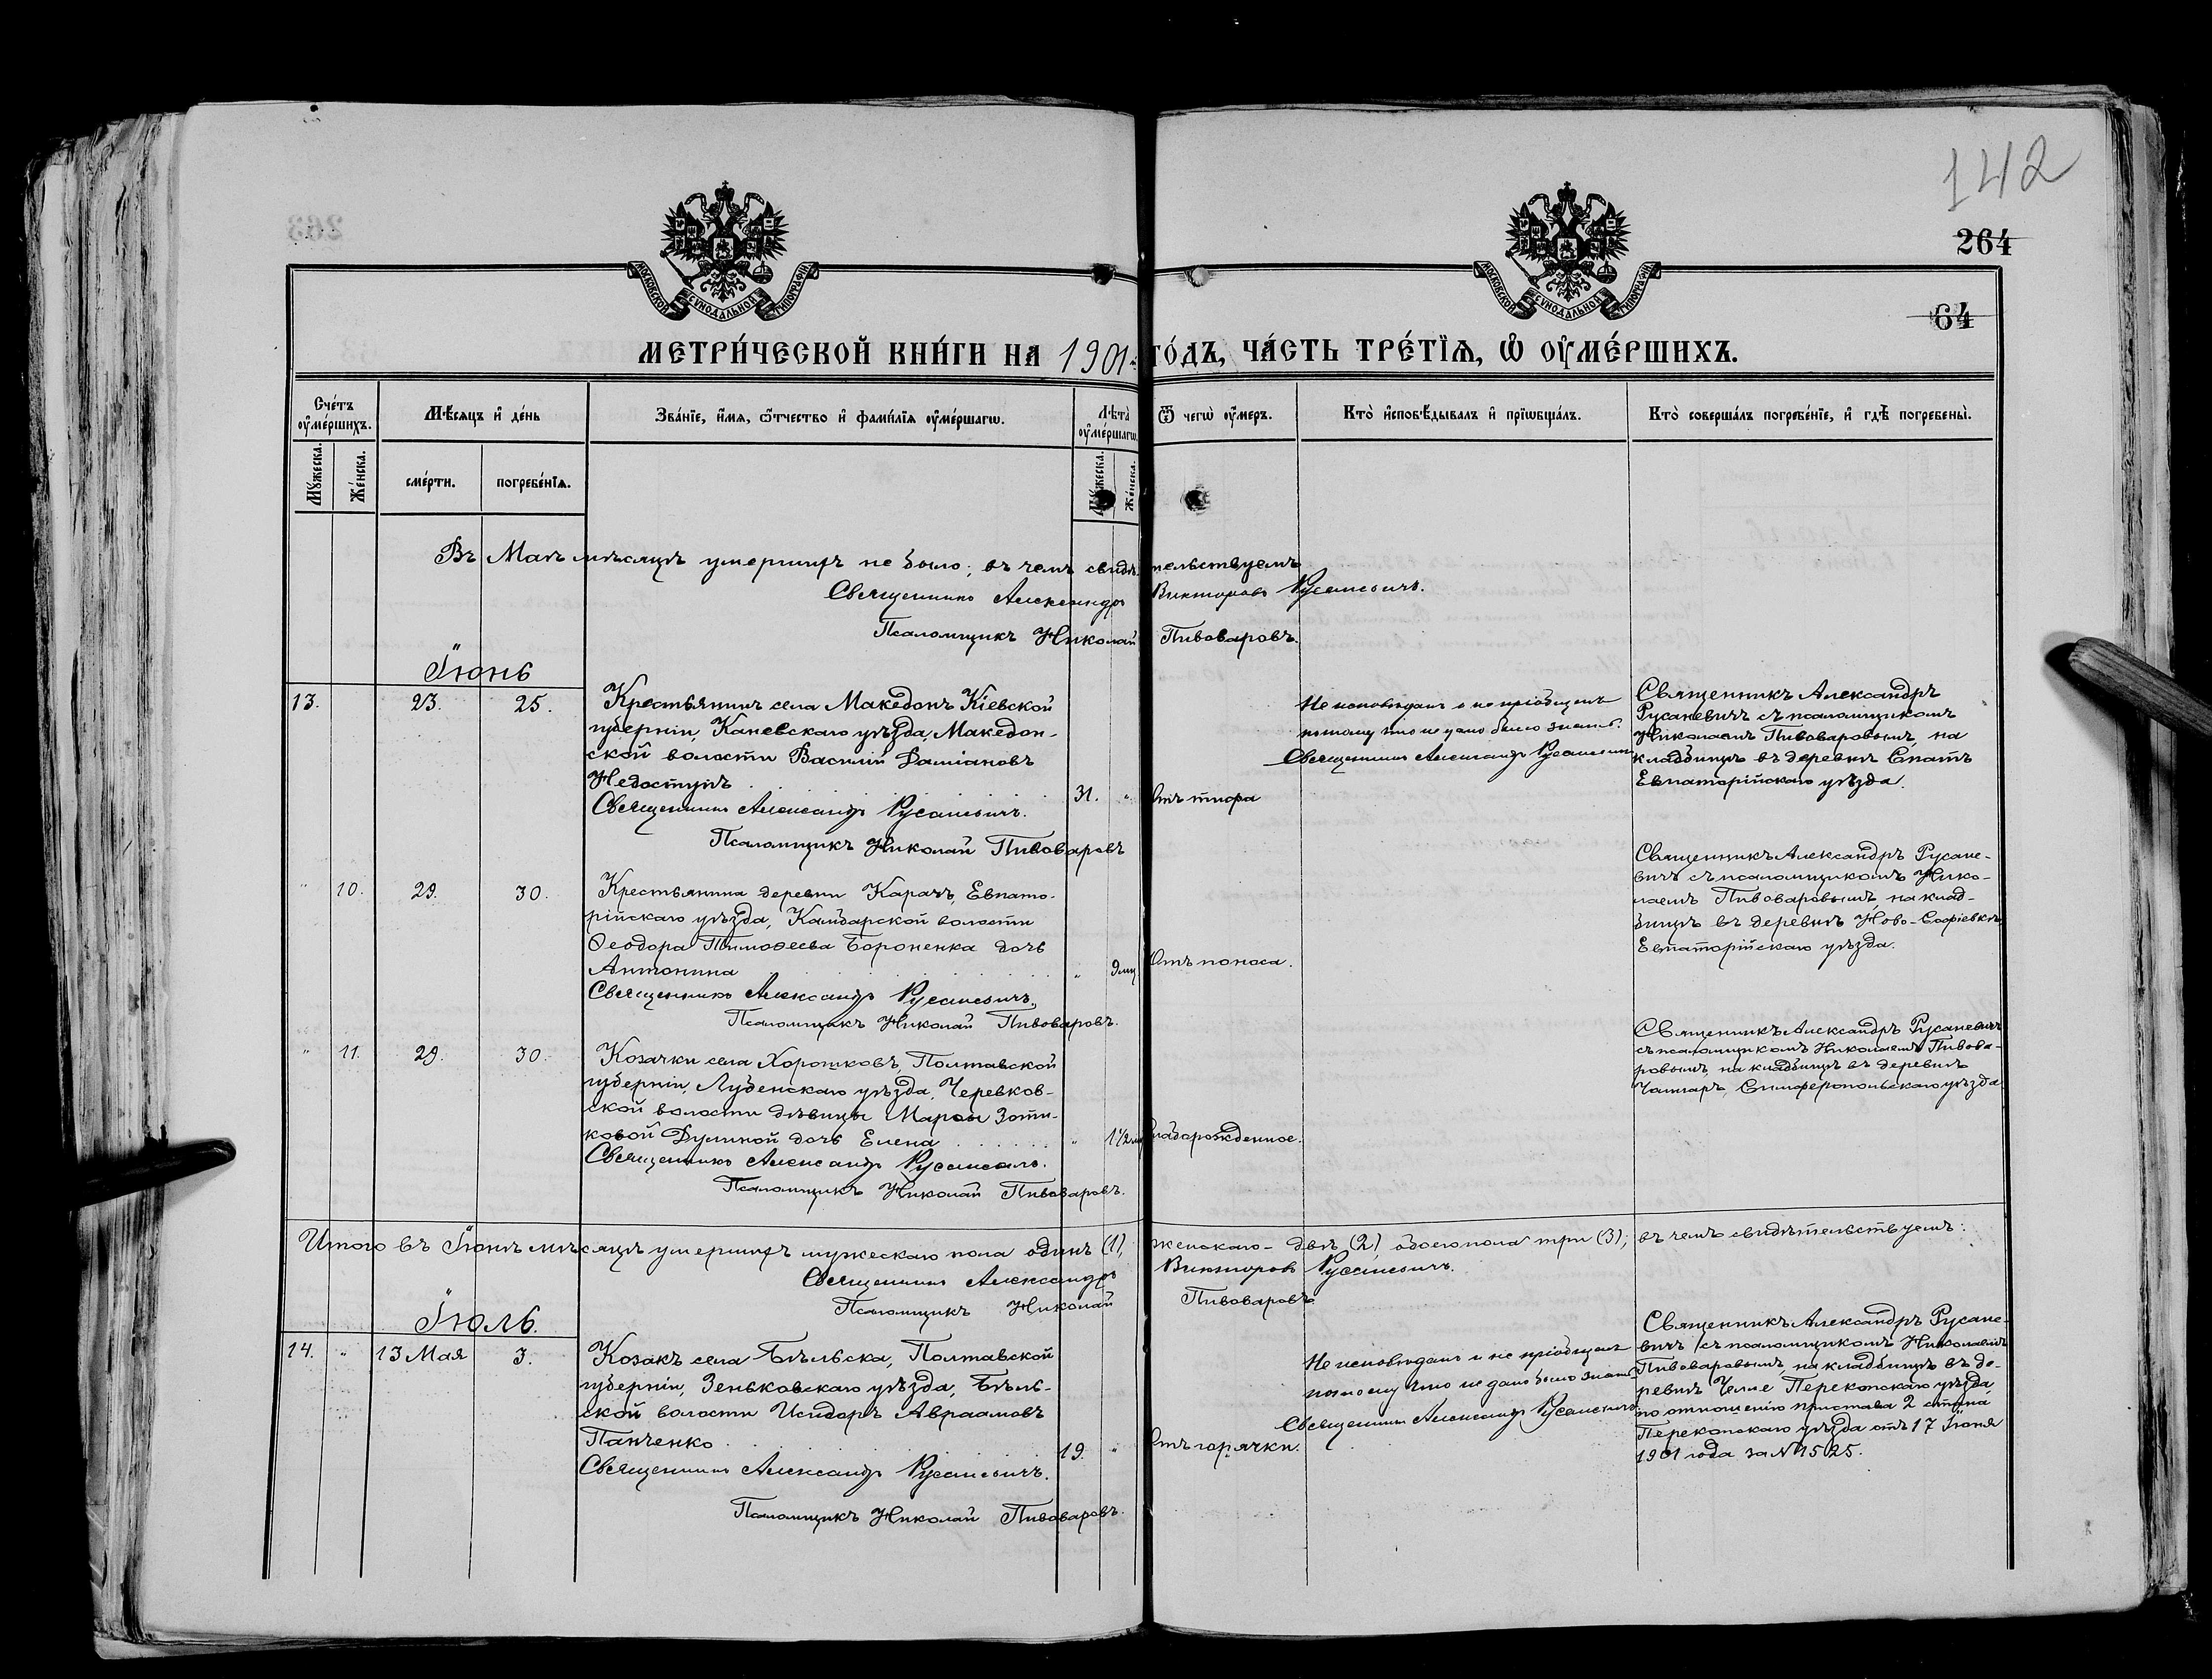 142
264
64
МОСКОВСКОЙ СѴНОДАЛЬНОЙ ТИПОГРАФІИ
МОСКОВСКОЙ СѴНОДАЛЬНОЙ ТИПОГРАФІИ
МЕТРИ́ЧЕСКОЙ КНИ́ГИ НА 1901 ГО́ДЪ, ЧА́СТЬ ТРЕ́ТЇѦ, Ѡ҆ ОУ҆МЕ́РШИХЪ.
Сче́тъ оу҆ме́ршихъ.
Мѣ́сяцъ и҆ де́нь
Зва́нїе, и҆́мя, ѻ҆́тчество и҆ фами́лїя оу҆ме́ршагѡ.
Лѣ́та оу҆ме́ршагѡ.
Ѿ чегѡ̀ оу҆́меръ.
Кто̀ и҆сповѣ́дывалъ и҆ прїѡбща́лъ.
Кто̀ соверша́лъ погребе́нїе, и҆ гдѣ̀ погребены̀.
Мꙋ́жеска.
Же́нска.
сме́рти.
погребе́нїя.
Мꙋ́жеска.
Же́нска.
Въ Маѣ мѣсяцѣ умершихъ не было; въ чемъ свидѣтельствуемъ
Священникъ Александръ Викторовъ Русаневичъ.
Псаломщикъ Николай Пивоваровъ.
Іюнь
13. 23. 25.
Крестьянинъ села Македонъ Кіевской
губерніи, Каневскаго уѣзда, Македон-
ской волости Василій Даміановъ
Недоступъ
31. „ Отъ тифа
Священникъ Александръ Русаневичъ.
Псаломщикъ Николай Пивоваровъ
Не исповѣданъ и не пріобщенъ
потому что не дано было знать.
Священникъ Александръ Русаневичъ
Священникъ Александръ
Русаневичъ съ псаломщикомъ
Николаемъ Пивоваровымъ, на
кладбищѣ въ деревнѣ Спатъ
Евпаторійскаго уѣзда.
„ 10. 29. 30.
Крестьянина деревни Карачъ, Евпато-
рійскаго уѣзда, Камбарской волости
Ѳеодора Тимоѳеева Бороненка дочь
Антонина
„ 9 мц. Отъ поноса.
Священникъ Александръ Русаневичъ.
Псаломщикъ Николай Пивоваровъ.
Священникъ Александръ Русане-
вичъ съ псаломщикомъ Нико-
лаемъ Пивоваровымъ, на клад-
бищѣ въ деревнѣ Ново-Софіевкѣ
Евпаторійскаго уѣзда.
„ 11. 29. 30.
Козачки села Хорошковъ, Полтавской
губерніи, Лубенскаго уѣзда, Черевков-
ской волости дѣвицы Марѳы Зоти-
ковой Дулиной дочь Елена
„ 1½ Слаборожденное.
Священникъ Александръ Русаневичъ.
Псаломщикъ Николай Пивоваровъ.
Священникъ Александръ Русаневичъ
съ псаломщикомъ Николаемъ Пивова-
ровымъ, на кладбищѣ въ деревнѣ
Симферопольскаго уѣзда
Итого въ Іюнѣ мѣсяцѣ умершихъ мужескаго пола одинъ (1), женскаго - двѣ (2), обоего пола три (3); въ чемъ свидѣтельствуемъ:
Священникъ Александръ Викторовъ Русаневичъ.
Псаломщикъ Николай Пивоваровъ
Іюль.
14. „ 13 Мая 3.
Козакъ села Бѣльска, Полтавской
губерніи, Зеньковскаго уѣзда, Бѣль-
ской волости Исидоръ Авраамовъ
Панченко
19. „ Отъ горячки.
Священникъ Александръ Русаневичъ.
Псаломщикъ Николай Пивоваровъ.
Не исповѣданъ и не пріобщенъ
потому что не дано было знать
Священникъ Александръ Русаневичъ
Священникъ Александръ Русане-
вичъ съ псаломщикомъ Николаемъ
Пивоваровымъ, на кладбищѣ въ де-
ревнѣ Перекопскаго уѣзда
по отношенію пристава 2 стана
Перекопскаго уѣзда отъ 17 Іюня
1901 года за № 1525.